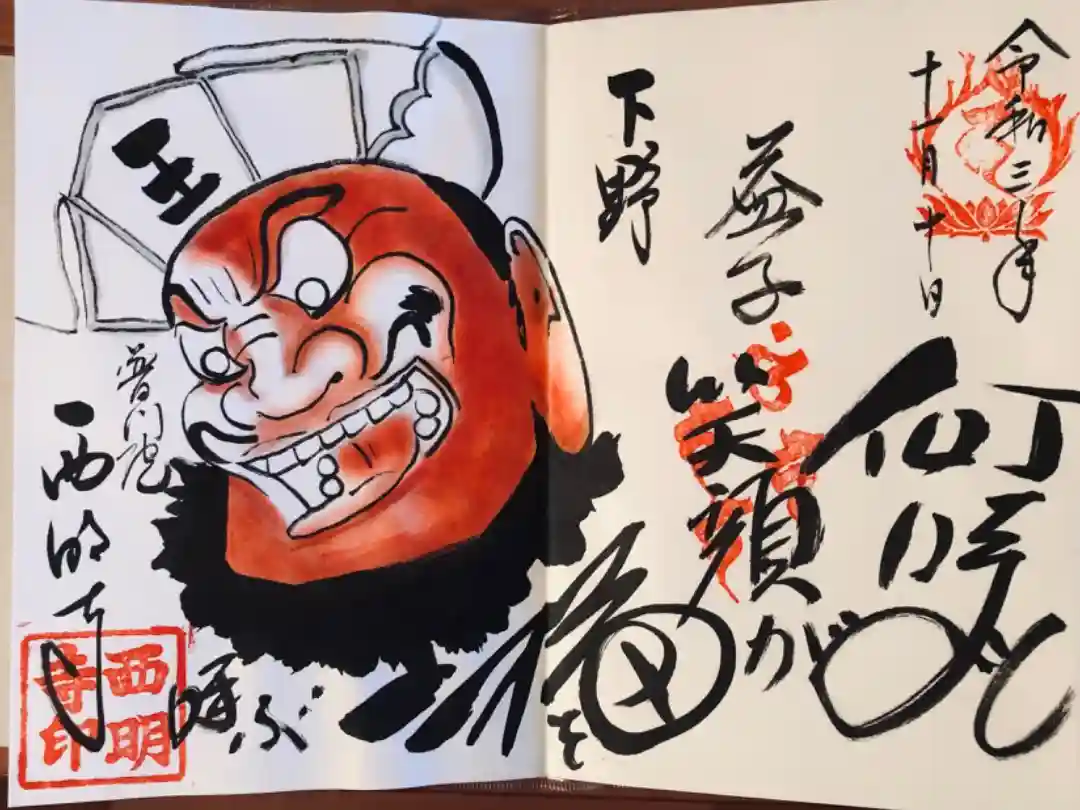 令和三年
十一月十日
何時もの
益子
笑顔が
下野
福を
呼ぶ
王
普門院
西明寺
西明
寺印